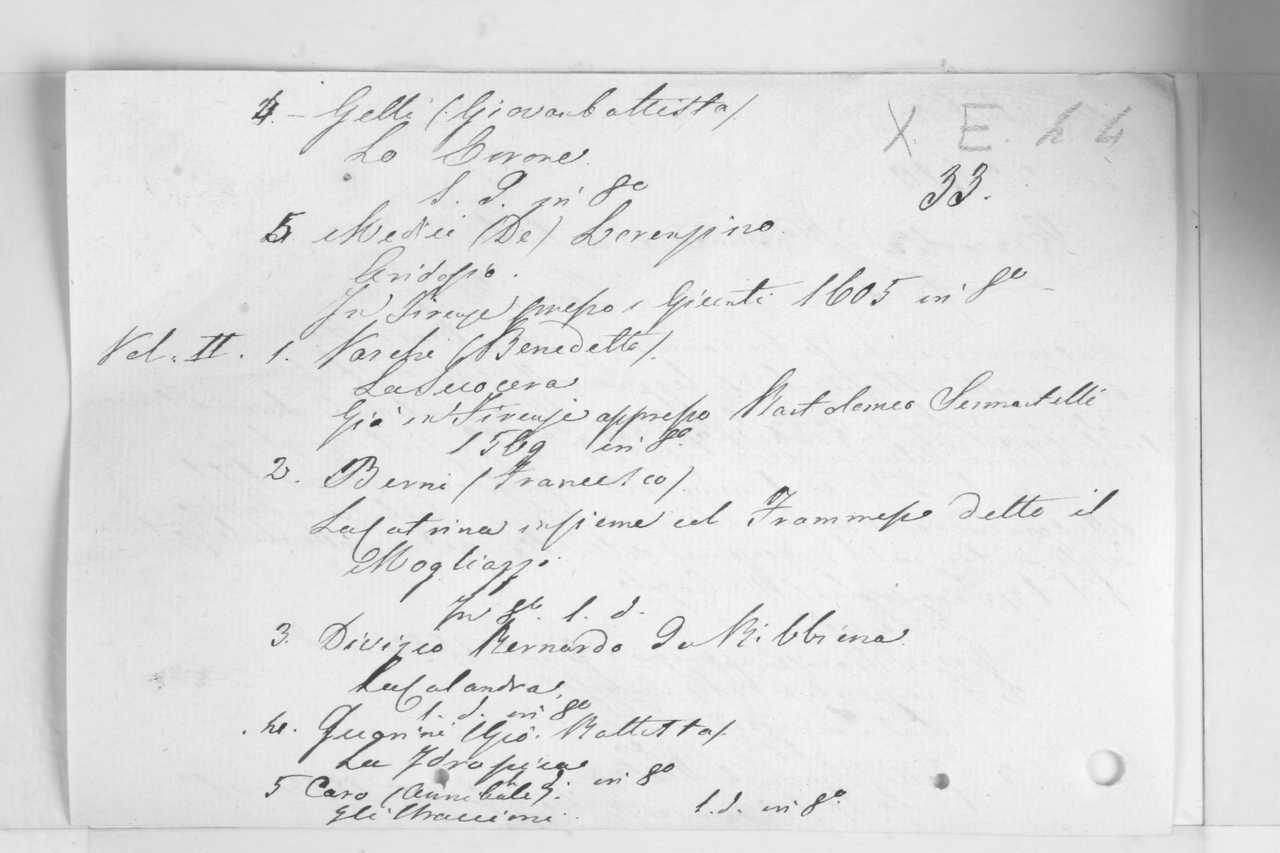 4. - Gelli (Giovanbattista)
X. E. 24
La Sporta
33.
s. d. in 8o
5. Medici (De) Lorenzino
Aridosio.
In Firenze presso i Giunti 1605 in 8o
Vol. II. 1. Varchi (Benedetto).
La Suocera
in Firenze appresso Bartolomeo Sermartelli
1569 in 8o.
2. Berni (Francesco)
La Catrina insieme col Frammesso detto il
Mogliazzo
In 8o. s. d.
3. Divizio Bernardo Da Bibbiena
La Calandra
s. d. in 8o
4. Guarini (Gio. Battista).
La Idropica
in 8o
5 Caro (Annibale).
Gli Straccioni.
s. d. in 8o.